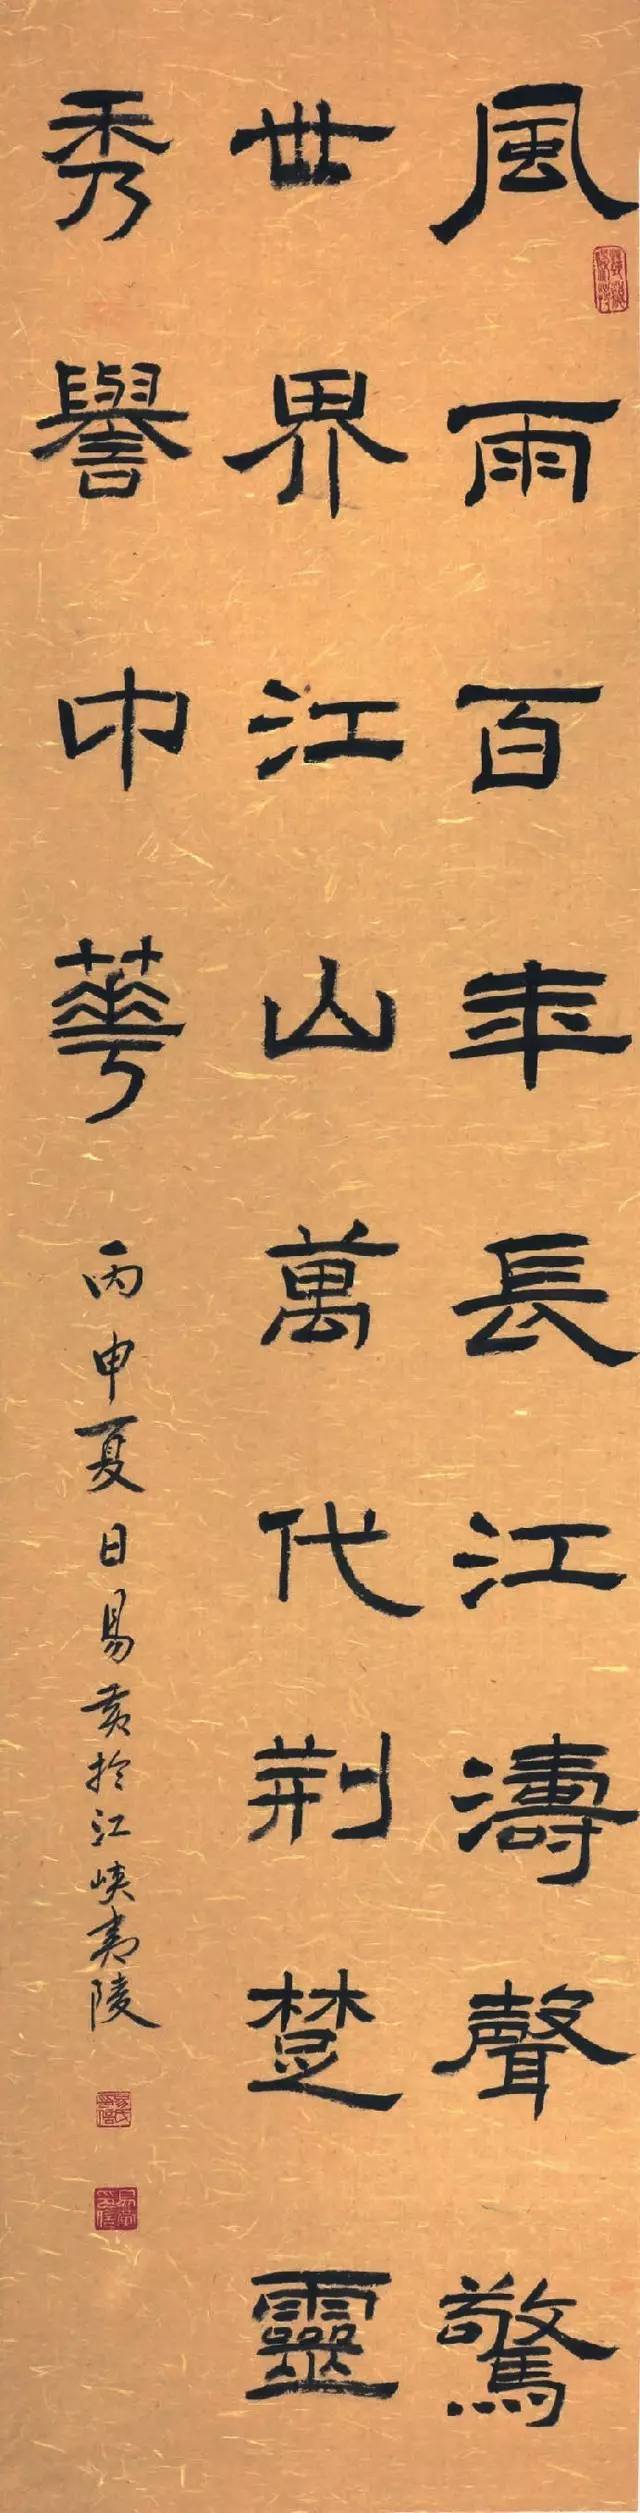 風雨百年長江濤聲驚
世界江山萬代荆楚靈
秀譽中華
丙申夏日易黄於江峽夷陵